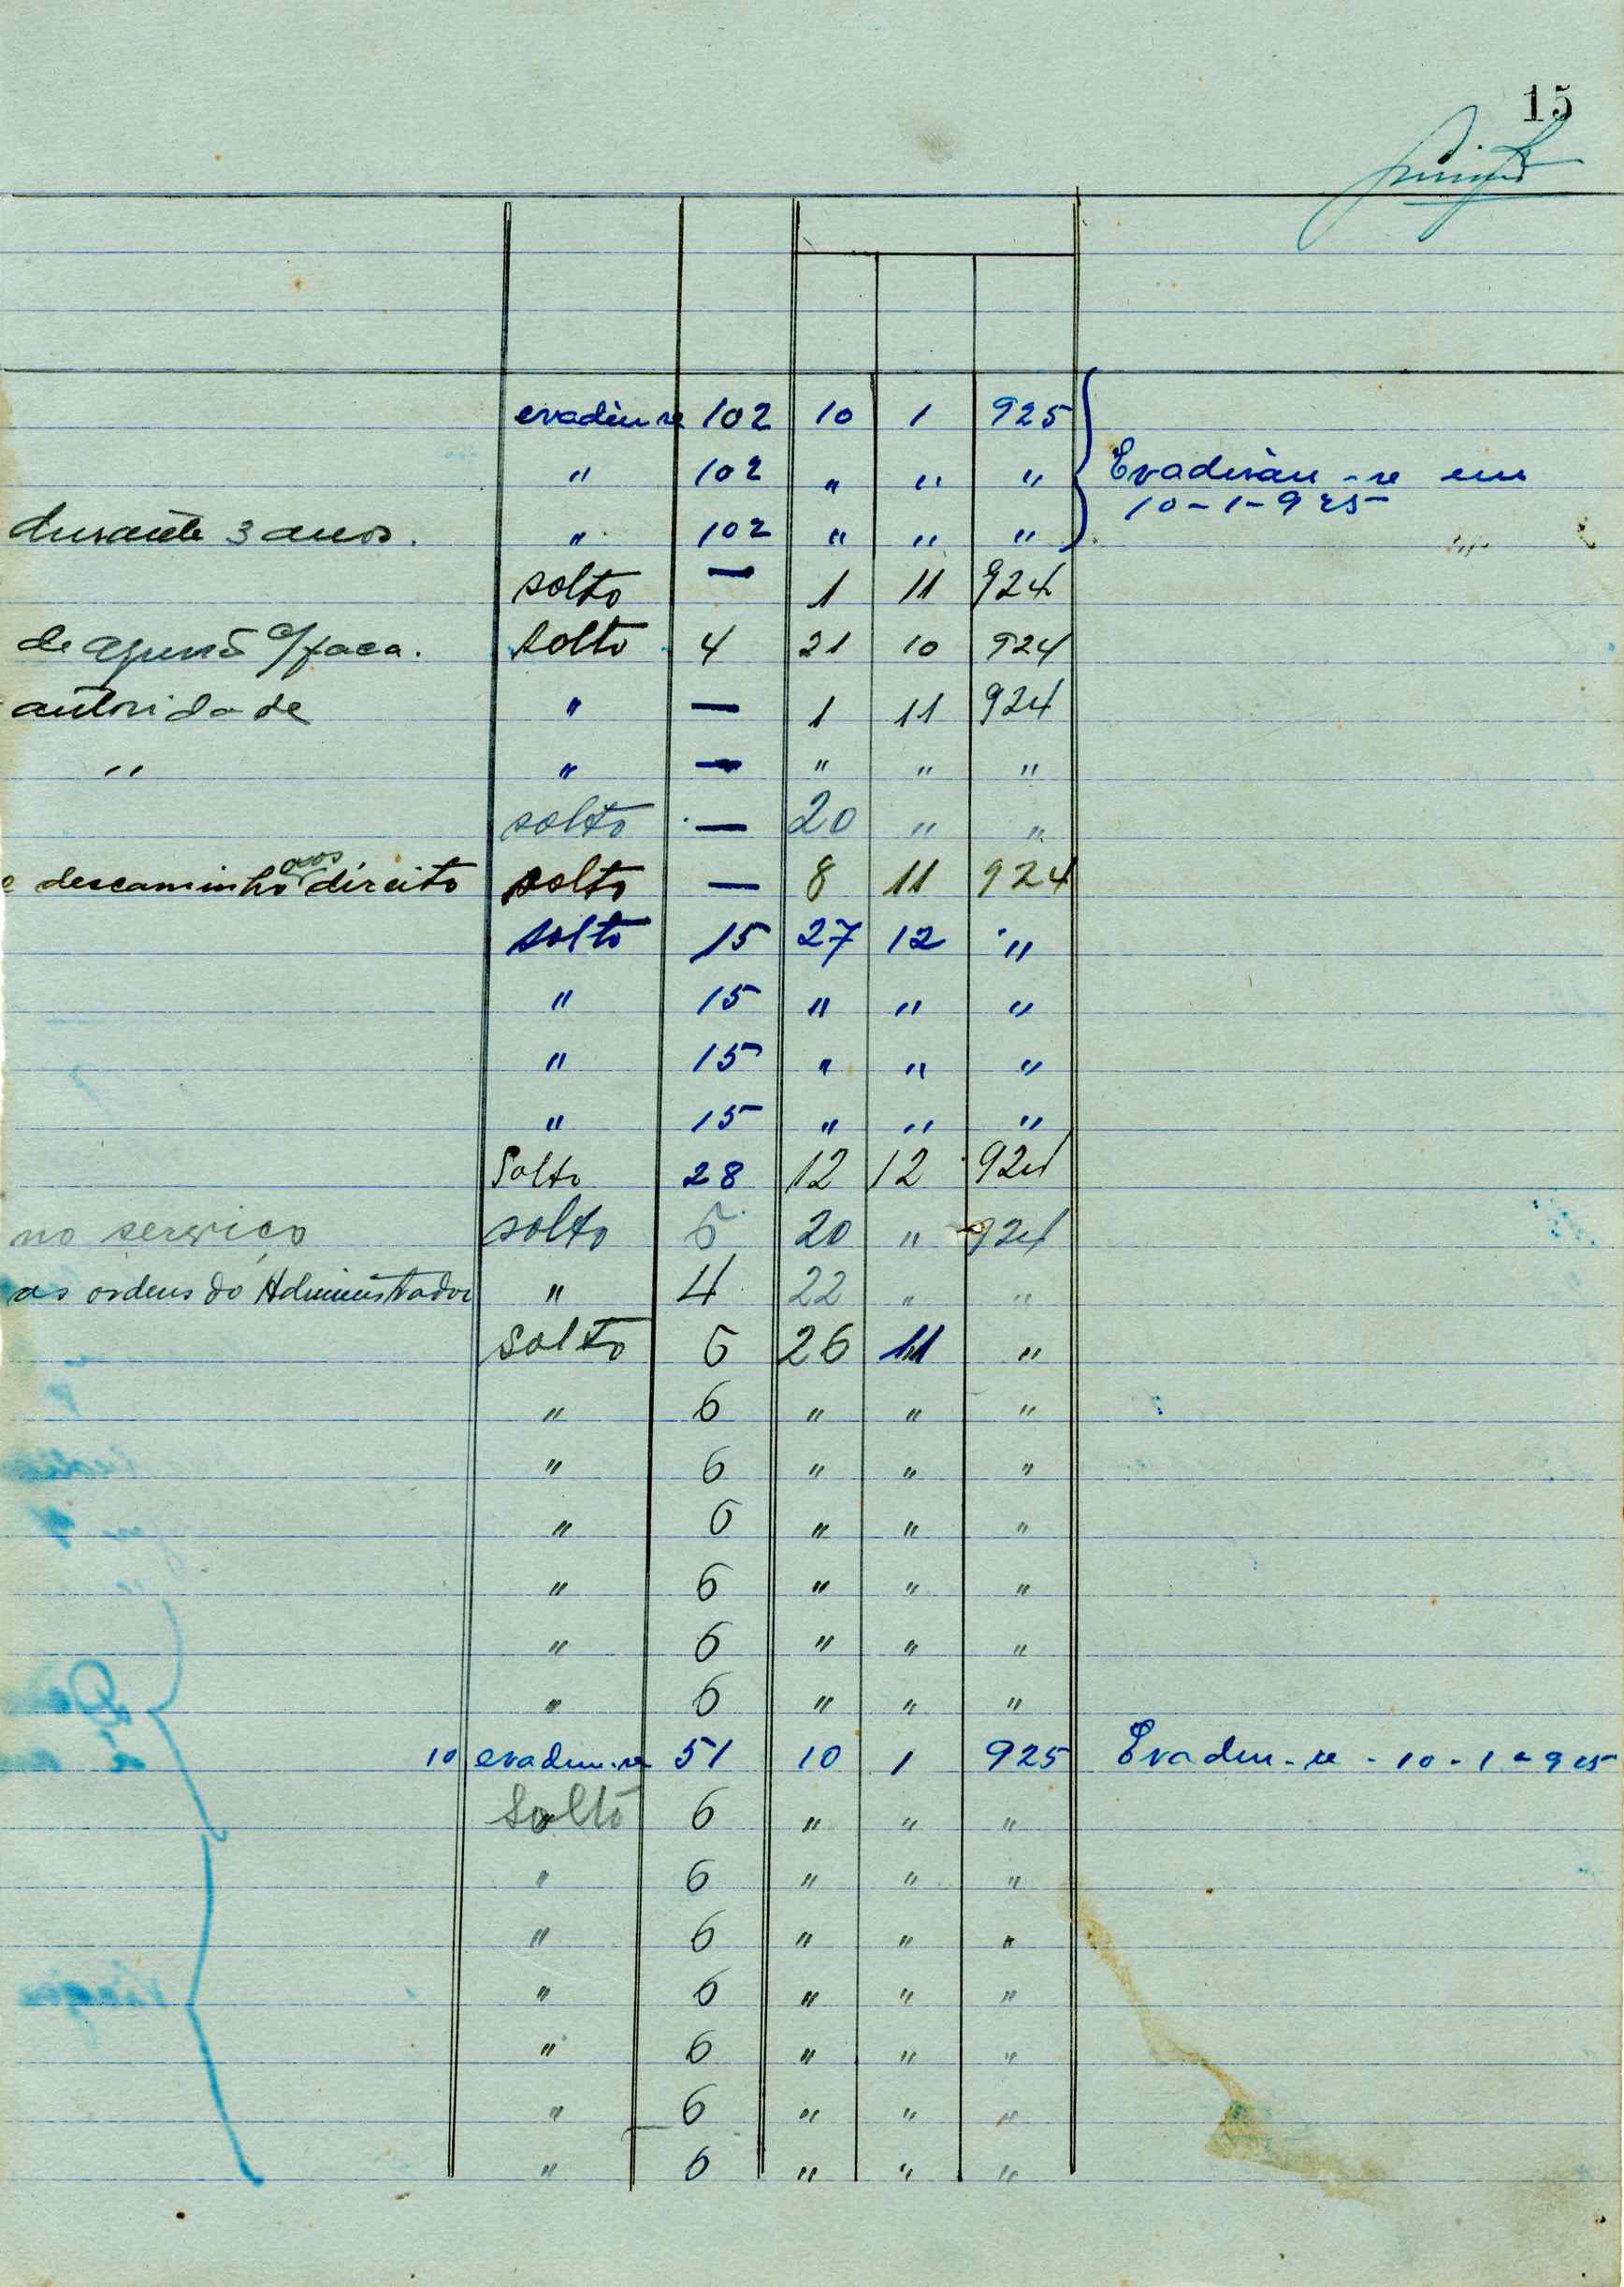 15
evadiu-se 102 10 1 925
" 102 " " " Evadirão-se em
10-1-925
durante 3 anos. " 102 " " "
solto — 1 11 924
de c/ faca. solto 4 21 10 924
autoridade " — 1 11 924
" " — " " "
solto — 20 " "
e descaminho aos direito solto — 8 11 924
solto 15 27 12 "
" 15 " " "
" 15 " " "
" 15 " " "
Solto 28 12 12 924
no serviço solto 5 20 " 924
as ordens do Administrador " 4 22 " "
solto 6 26 11 "
" 6 " " "
" 6 " " "
" 6 " " "
" 6 " " "
" 6 " " "
" 6 " " "
10 evadiu-se 51 10 1 925 Evadiu-se - 10-1-925
Solto 6 " " "
" 6 " " "
" 6 " " "
" 6 " " "
" 6 " " "
" 6 " " "
" 6 " " "